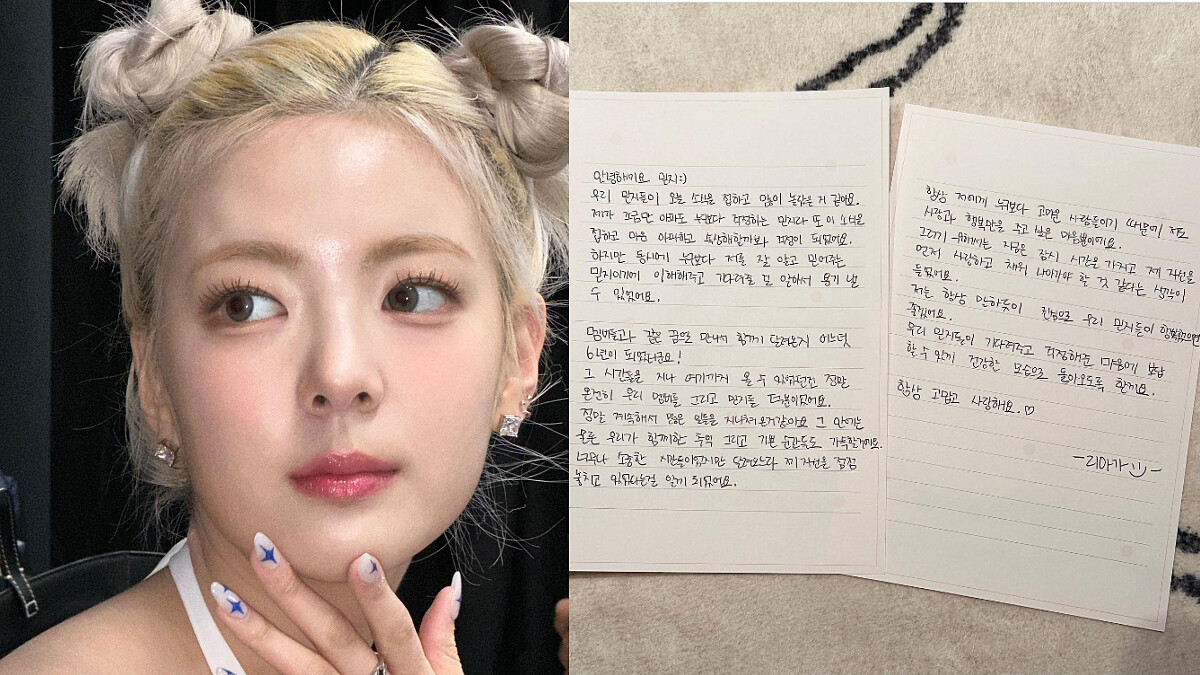 안녕하세요 믿지:)
우리 믿지들이 오늘 소식을 접하고 많이 놀랐을 거 같아요.
제가 조금만 아파도 누구보다 걱정하는 믿지라 또 이 소식을
접하고 마음 아파하고 속상해할까봐 걱정이 되었어요.
하지만 동시에 누구보다 저를 잘 알고 믿어주는
믿지이기에 이해해주고 기다려줄 걸 알아서 용기 낼
수 있었어요.
멤버들과 같은 꿈으로 만나서 함께 달려온지 어느덧
6년이 되었더라구요!
그 시간들을 지나 여기까지 올 수 있었던건 정말
온전히 우리 멤버들 그리고 믿지들 덕분이었어요.
정말 계속해서 많은 일들을 지나쳐온거같아요 그 안에는
물론 우리가 함께한 추억 그리고 기쁜 순간들도 가득할거예요.
너무나 소중한 시간들이었지만 달려오느라 제 자신을 점점
놓치고 있었다는걸 알게 되었어요.
항상 저에게 누구보다 고마운 사람들이기 때문에 저도
사랑과 행복만을 주고 싶은 마음뿐이에요.
그러기 위해서는 지금은 잠시 시간을 가지고 제 자신을
먼저 사랑하고 채워 나아가야 할 것 같다는 생각이
들었어요.
저는 항상 말하듯이 진심으로 우리 믿지들이 행복했으면
좋겠어요.
우리 믿지들이 기다려주고 걱정해준 마음에 보답
할 수 있게 건강한 모습으로 돌아오도록 할게요.
항상 고맙고 사랑해요.♡
-리아가☺-